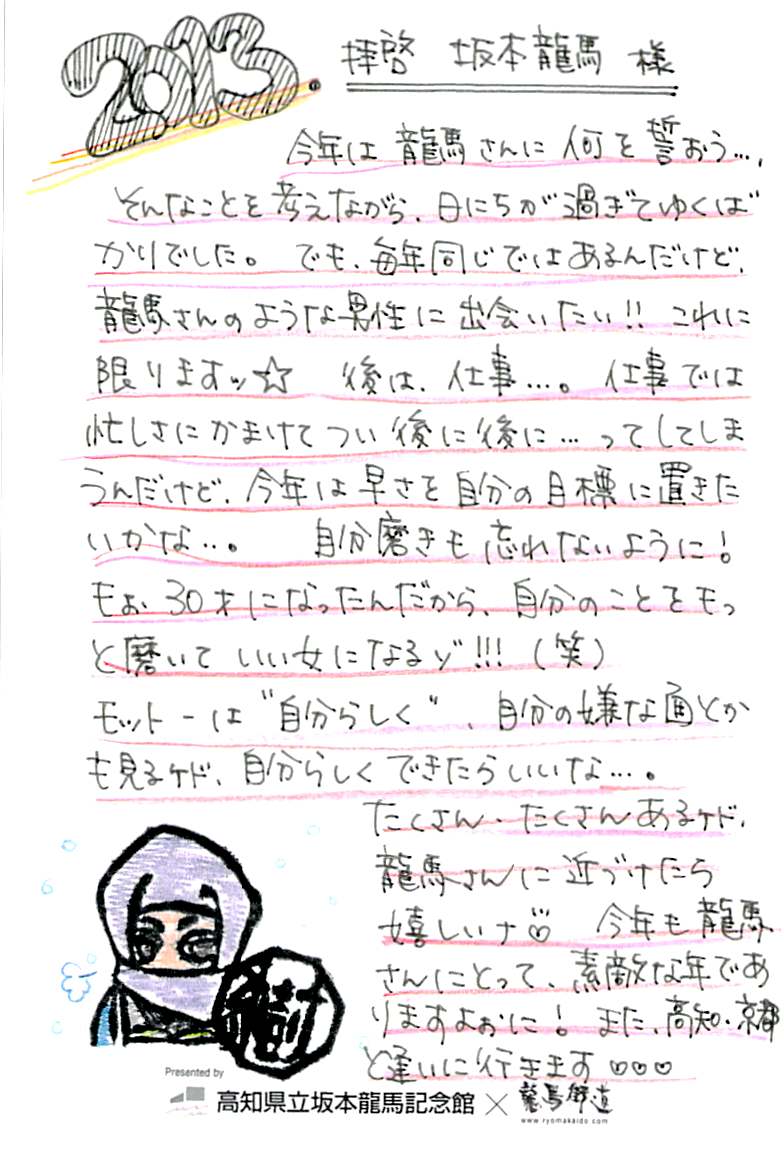 2013
拝啓 坂本龍馬 様
今年は 龍馬さんに 何を 誓おう…、
そんなことを 考えながら、日にちが 過ぎてゆくば
かりでした。 でも、毎年同じではあるんだけど、
龍馬さんのような男性に 出会いたい!! これに
限りますッ☆ 後は、仕事…。仕事では
忙しさにかまけてつい後に後に…ってしてしま
うんだけど、今年は早さを自分の目標に置きた
いかな…。 自分磨きも忘れないように!
もぉ 30才になったんだから、自分のことをもっ
と磨いて いい女になるゾ!!! (笑)
モットーは"自分らしく"、自分の嫌な面とか
も見るケド、自分らしくできたらいいな…。
たくさん・たくさんあるケド、
龍馬さんに近づけたら
嬉しいナ♡ 今年も龍馬
さんにとって、素敵な年であ
りますよぉに! また、高知・京都
と逢いに行きます♡♡♡
Presented by
高知県立坂本龍馬記念館 × 龍馬街道
www.ryomakaido.com